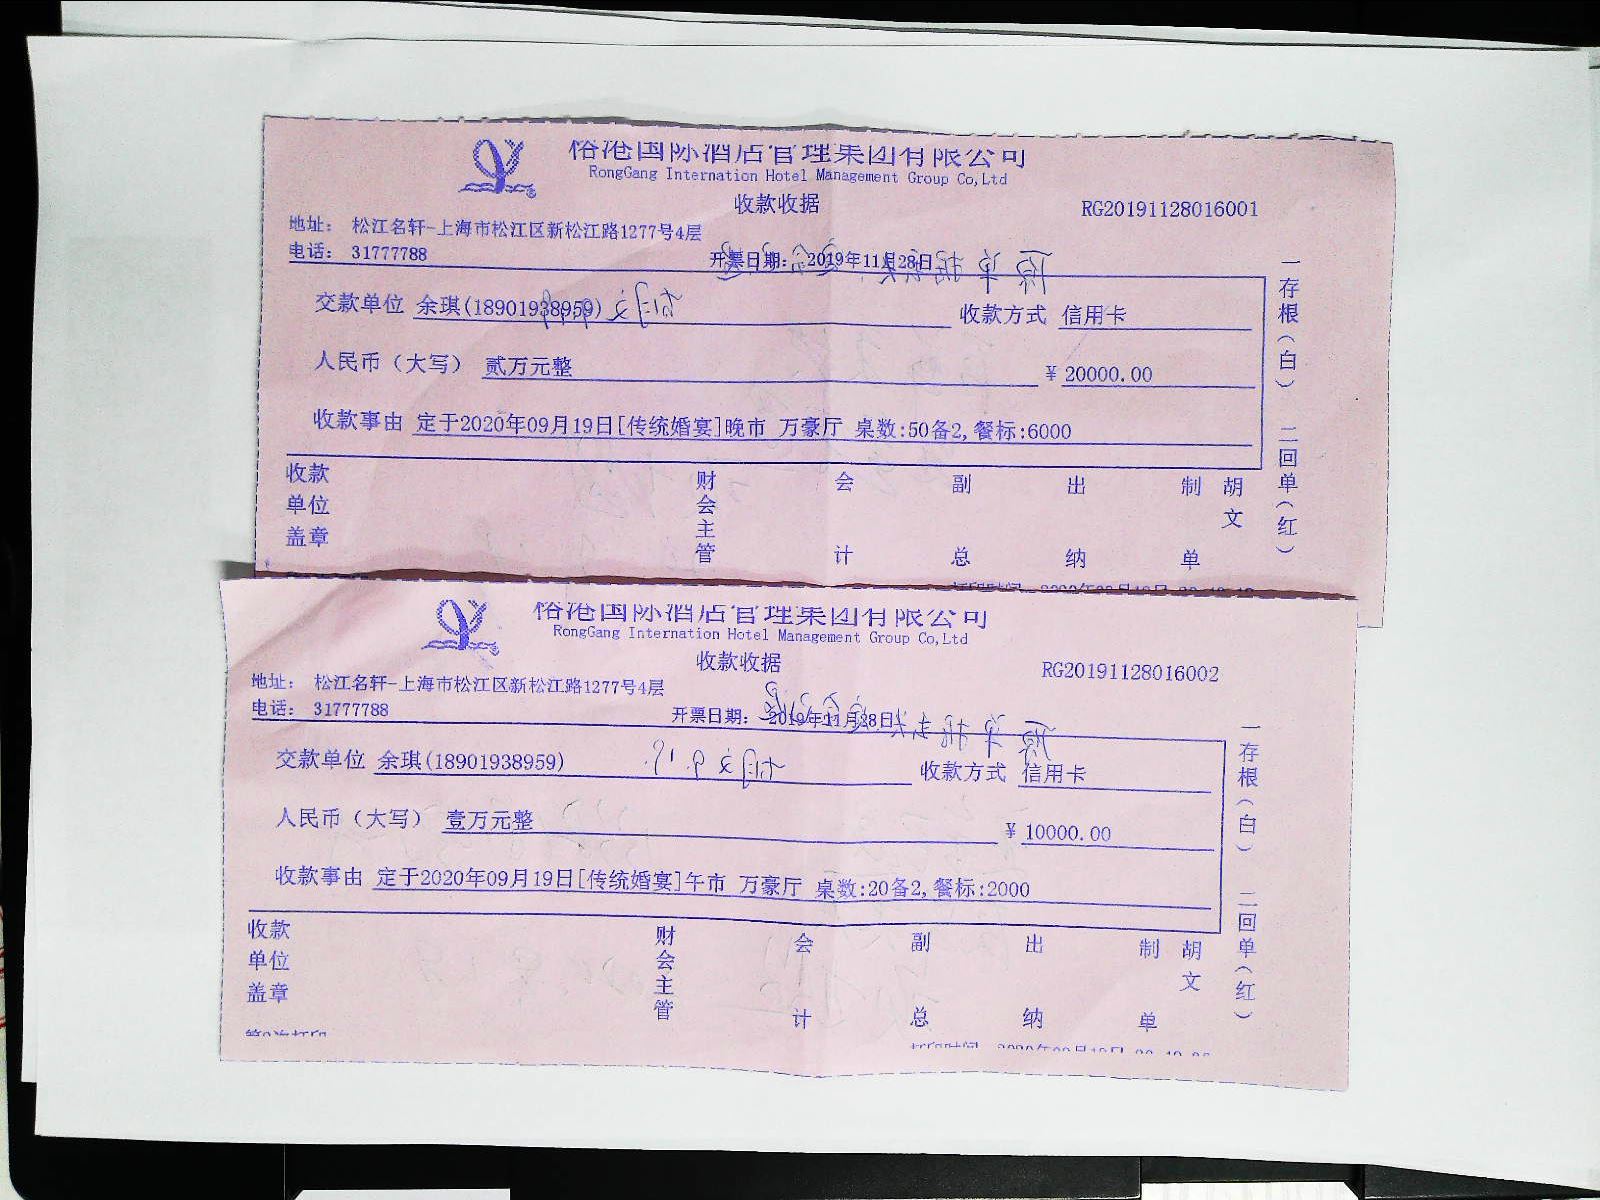 榕港国际酒店管理集团有限公司
RongGang Internation Hotel Management Group Co,Ltd
收款收据
RG20191128016001
地址： 松江名轩-上海市松江区新松江路1277号4层
电话： 31777788
开票日期： 2019年11月28日
交款单位 余琪(18901938959) 收款方式 信用卡
人民币（大写） 贰万元整 ￥20000.00
收款事由 定于2020年09月19日[传统婚宴]晚市 万豪厅 桌数:50备2,餐标:6000
收款单位盖章 财会主管 会计 副总 出纳 制单 胡文
一存根（白） 二回单（红）
榕港国际酒店管理集团有限公司
RongGang Internation Hotel Management Group Co,Ltd
收款收据
RG20191128016002
地址： 松江名轩-上海市松江区新松江路1277号4层
电话： 31777788
开票日期： 2019年11月28日
交款单位 余琪(18901938959) 收款方式 信用卡
人民币（大写） 壹万元整 ￥10000.00
收款事由 定于2020年09月19日[传统婚宴]午市 万豪厅 桌数:20备2,餐标:2000
收款单位盖章 财会主管 会计 副总 出纳 制单 胡文
一存根（白） 二回单（红）